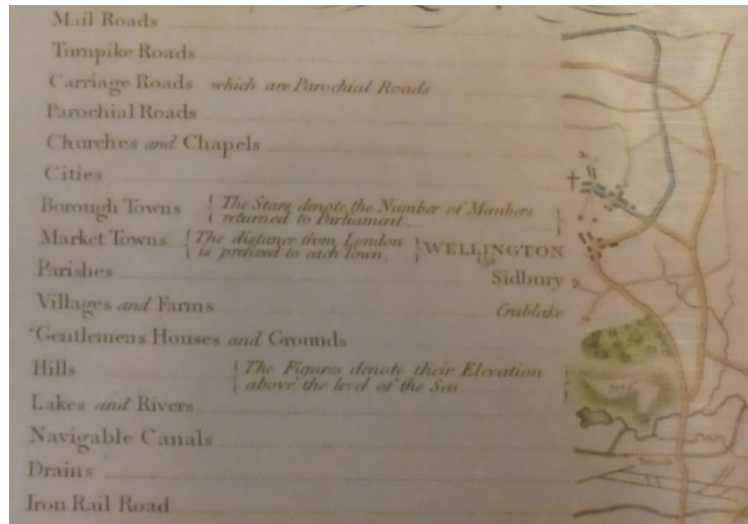 Mail Roads
Turnpike Roads
Carriage Roads which are Parochial Roads
Parochial Roads
Churches and Chapels
Cities
Borough Towns { The Stars denote the Number of Members returned to Parliament. }
Market Towns { The distance from London is prefixed to each Town. } WELLINGTON
Parishes Sidbury
Villages and Farms Crablake
Gentlemens Houses and Grounds
Hills { The Figures denote their Elevation above the level of the Sea }
Lakes and Rivers
Navigable Canals
Drains
Iron Rail Road